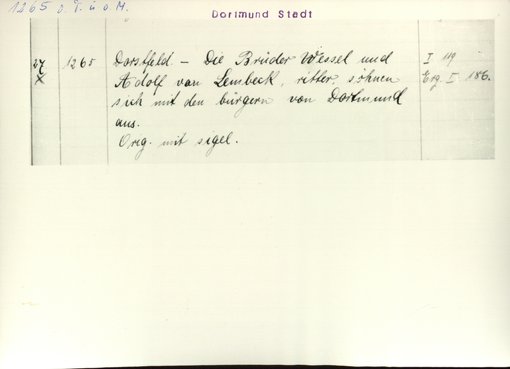 1265 o. T. u. o. M.
Dortmund Stadt
27 1265 Dorstfeld. — Die Brüder Wessel und I 119
X Adolf van Lembeck, ritter, söhnen Erg. I 186.
sich mit den bürgern von Dortmund
aus.
Orig. mit sigel.